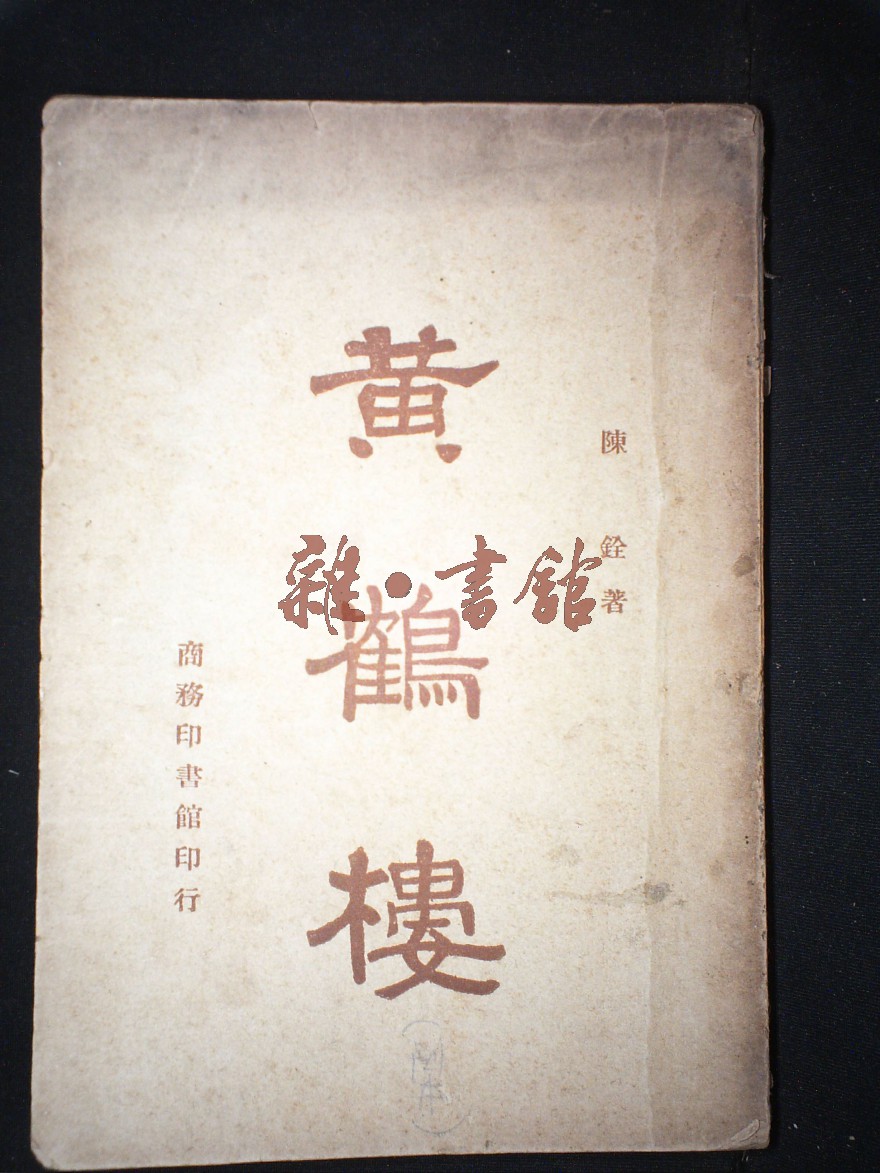 陳銓著
黃鶴樓
商務印書館印行
雜·書館